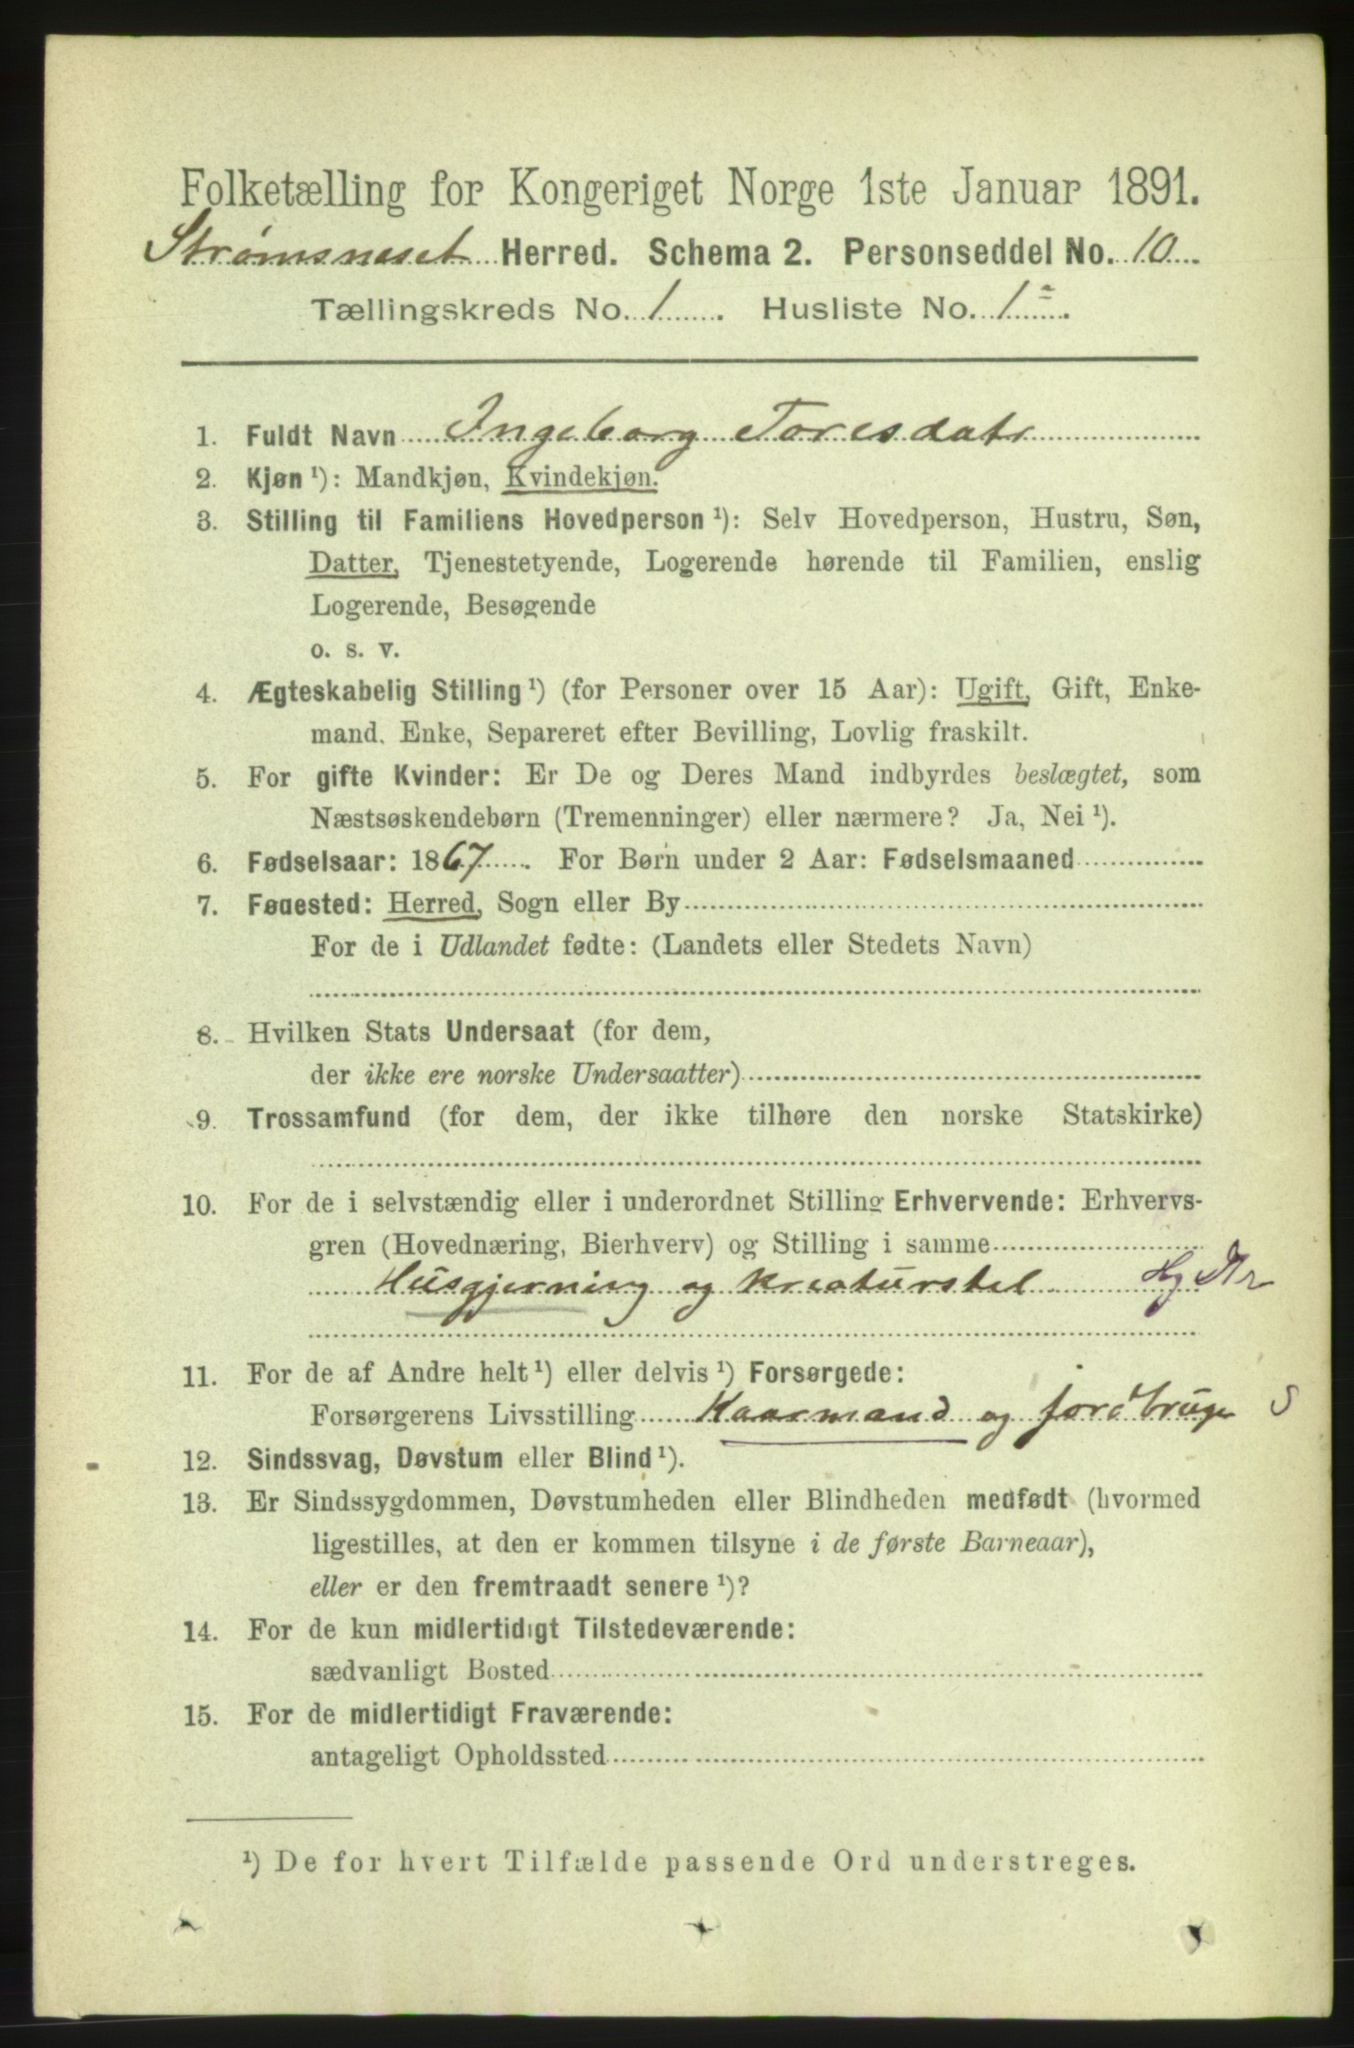 Folketælling for Kongeriget Norge 1ste Januar 1891.
Strømsneset Herred. Schema 2. Personseddel No. 10
Tællingskreds No. 1. Husliste No. 1 a
1. Fuldt Navn Ingeborg Toresdatr
2. Kjøn ¹): Mandkjøn, Kvindekjøn.
3. Stilling til Familiens Hovedperson ¹): Selv Hovedperson, Hustru, Søn,
Datter, Tjenestetyende, Logerende hørende til Familien, enslig
Logerende, Besøgende
o. s. v.
4. Ægteskabelig Stilling ¹) (for Personer over 15 Aar): Ugift, Gift, Enke-
mand, Enke, Separeret efter Bevilling, Lovlig fraskilt.
5. For gifte Kvinder: Er De og Deres Mand indbyrdes beslægtet, som
Næstsøskendebørn (Tremenninger) eller nærmere? Ja, Nei ¹).
6. Fødselsaar: 1867. For Børn under 2 Aar: Fødselsmaaned
7. Fødested: Herred, Sogn eller By
For de i Udlandet fødte: (Landets eller Stedets Navn)
8. Hvilken Stats Undersaat (for dem,
der ikke ere norske Undersaatter)
9. Trossamfund (for dem, der ikke tilhøre den norske Statskirke)
10. For de i selvstændig eller i underordnet Stilling Erhvervende: Erhvervs-
gren (Hovednæring, Bierhverv) og Stilling i samme
Husgjerning og kreaturstel Hg
11. For de af Andre helt ¹) eller delvis ¹) Forsørgede:
Forsørgerens Livsstilling Kaarmand og jordbruger S
12. Sindssvag, Døvstum eller Blind ¹).
13. Er Sindssygdommen, Døvstumheden eller Blindheden medfødt (hvormed
ligestilles, at den er kommen tilsyne i de første Barneaar),
eller er den fremtraadt senere ¹)?
14. For de kun midlertidigt Tilstedeværende:
sædvanligt Bosted
15. For de midlertidigt Fraværende:
antageligt Opholdssted
¹) De for hvert Tilfælde passende Ord understreges.